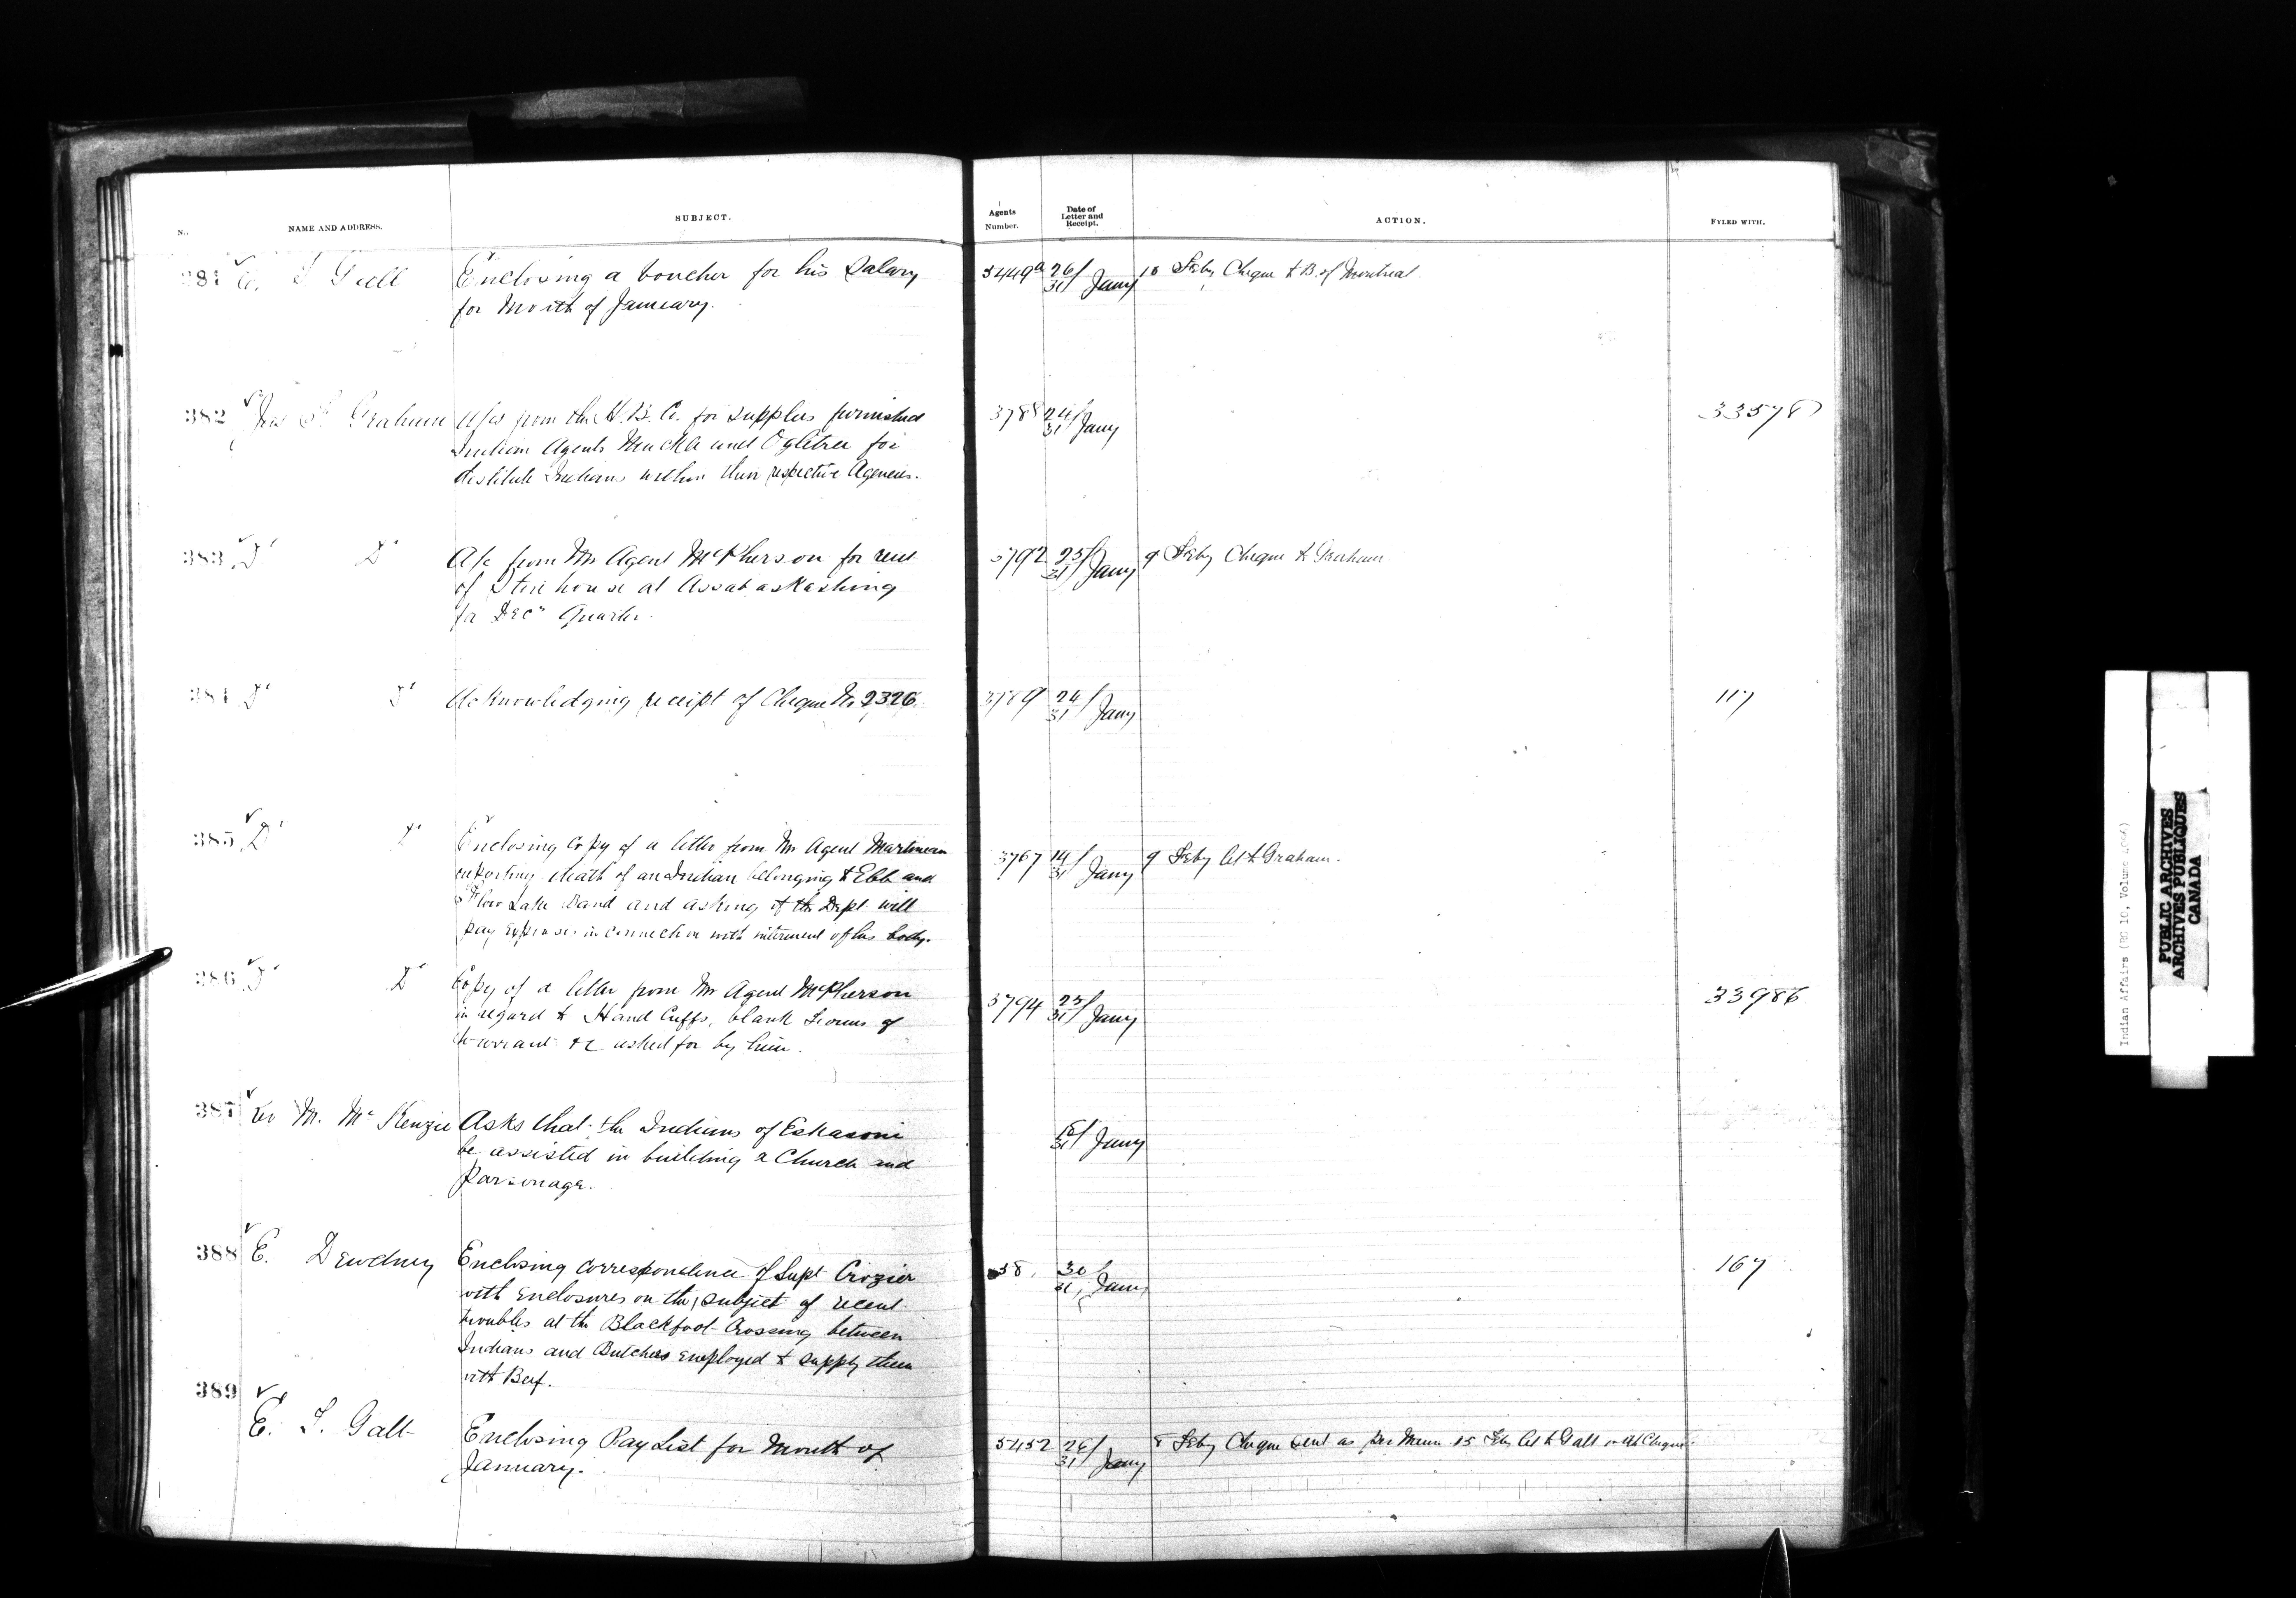 No. NAME AND ADDRESS. SUBJECT. Agents Number. Date of Letter and Receipt. ACTION. FYLED WITH.
381 E. T. Galt Enclosing a voucher for his Salary 5449a 26/31 Jany 18 Feby Cheque to B. of Montreal
for Month of January.
382 Jas F. Graham A/cs from the H. B. Co. for supplies furnished 3788 24/31 Jany 33578
Indian Agents Muckle and Ogletree for
destitute Indians within their respective Agencies.
383 Do Do A/c from Mr Agent McPherson for rent 3792 25/31 Jany 9 Feby Cheque to Graham
of Store house at Assabaskashing
for Decr Quarter.
384 Do Do Acknowledging receipt of Cheque No 2326 3789 24/31 Jany 117
385 Do Do Enclosing Copy of a letter from Mr Agent Martineau 3767 19/31 Jany 9 Feby Let to Graham.
reporting death of an Indian belonging to Ebb and
Flow Lake Band and asking if the Dept will
pay expenses in connection with interment of his body.
386 Do Do Copy of a letter from Mr Agent McPherson 3794 25/31 Jany 33986
in regard to Hand Cuffs, blank Forms of
Warrant &c asked for by him.
387 Rev M. McKenzie Asks that the Indians of Eskasoni /31 Jany
be assisted in building a Church and
Parsonage.
388 E. Dewdney Enclosing correspondence of Supt Crozier 38. 30/31 Jany 167
with enclosures on the subject of recent
troubles at the Blackfoot Crossing between
Indians and Butchers employed to supply them
with Beef.
389
E. T. Galt Enclosing Pay List for Month of 5452 26/31 Jany 8 Feby Cheque sent as per Memo 15 Feby Let to Galt Cheque
January.
Indian Affairs (RG 10, Volume
PUBLIC ARCHIVES
ARCHIVES PUBLIQUES
CANADA